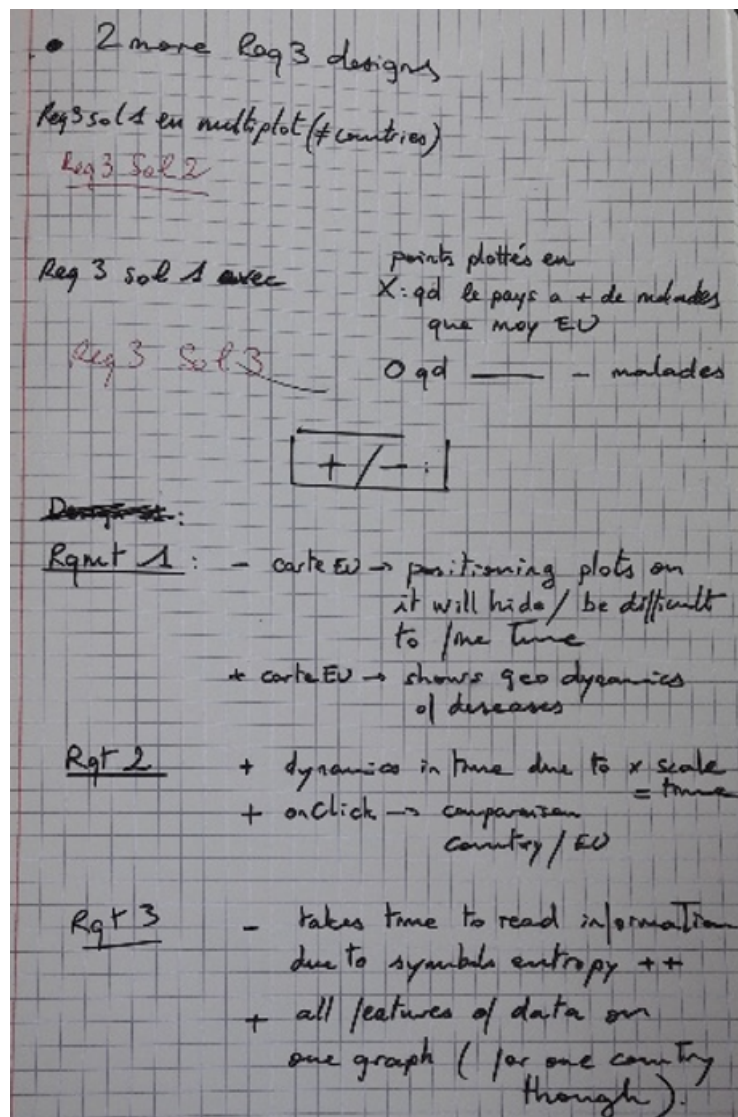 • 2 more Req 3 designs
Req 3 sol 1 en multiplot (≠ countries)
Req 3 Sol 2
Req 3 sol 1 avec
points plottés en
X : qd le pays a + de malades
que moy EU
Req 3 Sol 3
O qd —— - malades
+ / - :
Rqmt 1 : - carte EU → positioning plots on
it will hide / be difficult
to fine tune
+ carte EU → shows geo dynamics
of diseases
Rqt 2 + dynamics in time due to x scale
= time
+ onClick → comparaison
country / EU
Rqt 3 - takes time to read information
due to symbols entropy ++
+ all features of data on
one graph ( for one country
though ).